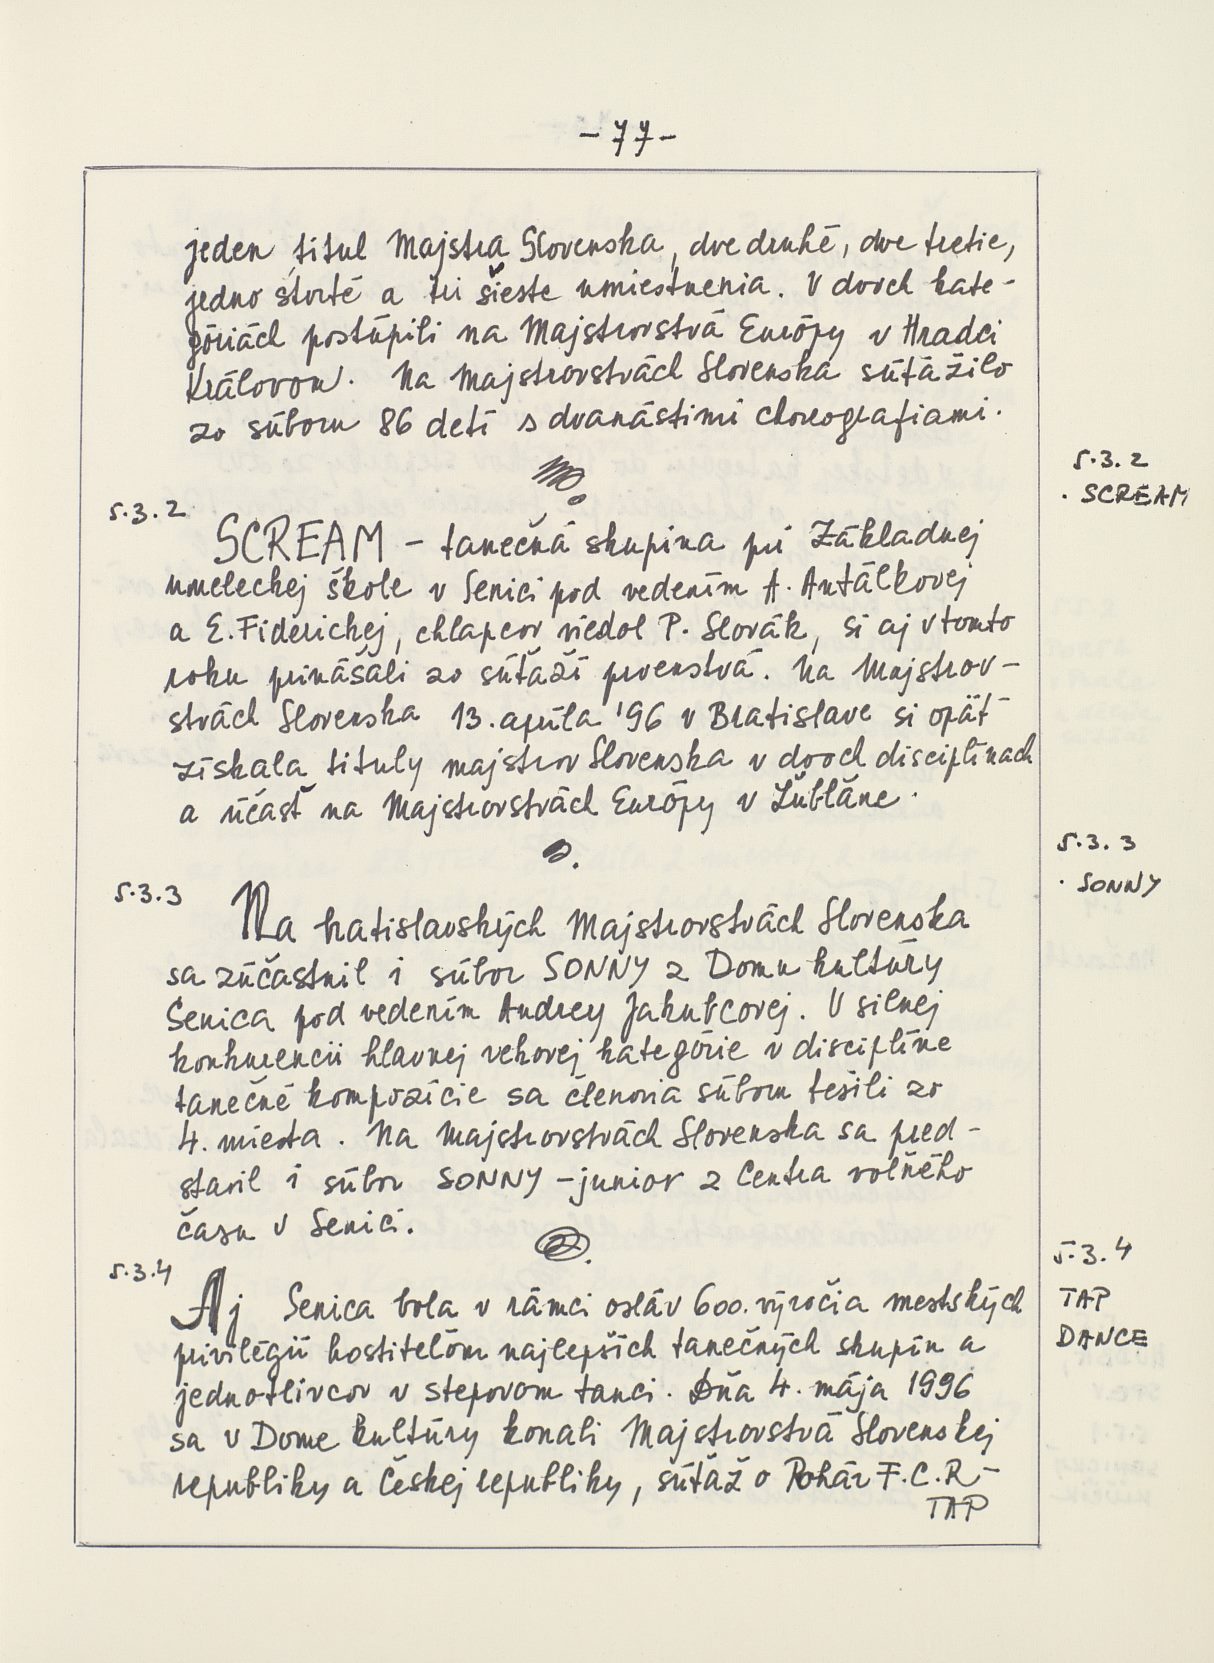 - 77 -
jeden titul Majstra Slovenska, dve druhé, dve tretie,
jedno štvrté a tri šieste umiestnenia. V dvoch kate-
góriách postúpili na Majstrovstvá Európy v Hradci
Královom. Na Majstrovstvách Slovenska súťažilo
zo súboru 86 detí s dvanástimi choreografiami.
5.3.2
· SCREAM
5.3.2
SCREAM - tanečná skupina pri Základnej
umeleckej škole v Senici pod vedením A. Antálkovej
a E. Fiderickej, chlapcov viedol P. Slovák, si aj v tomto
roku prinášali zo súťaží prvenstvá. Na Majstrov-
stvách Slovenska 13. apríla '96 v Bratislave si opäť
získala tituly majstrov Slovenska v dvoch disciplínach
a účasť na Majstrovstvách Európy v Ľubľane.
5.3.3
· SONNY
5.3.3
Na bratislavských Majstrovstvách Slovenska
sa zúčastnil i súbor SONNY z Domu kultúry
Senica pod vedením Andrey Jakubcovej. V silnej
konkurencii hlavnej vekovej kategórie v disciplíne
tanečné kompozície sa členovia súboru tešili zo
4. miesta. Na Majstrovstvách Slovenska sa pred-
stavil i súbor SONNY - junior z Centra voľného
času v Senici.
5.3.4
TAP
DANCE
5.3.4
Aj Senica bola v rámci osláv 600. výročia mestských
privilégií hostiteľom najlepších tanečných skupín a
jednotlivcov v stepovom tanci. Dňa 4. mája 1996
sa v Dome kultúry konali Majstrovstvá Slovenskej
republiky a Českej republiky, súťaž o Pohár F.C.R-
TAP